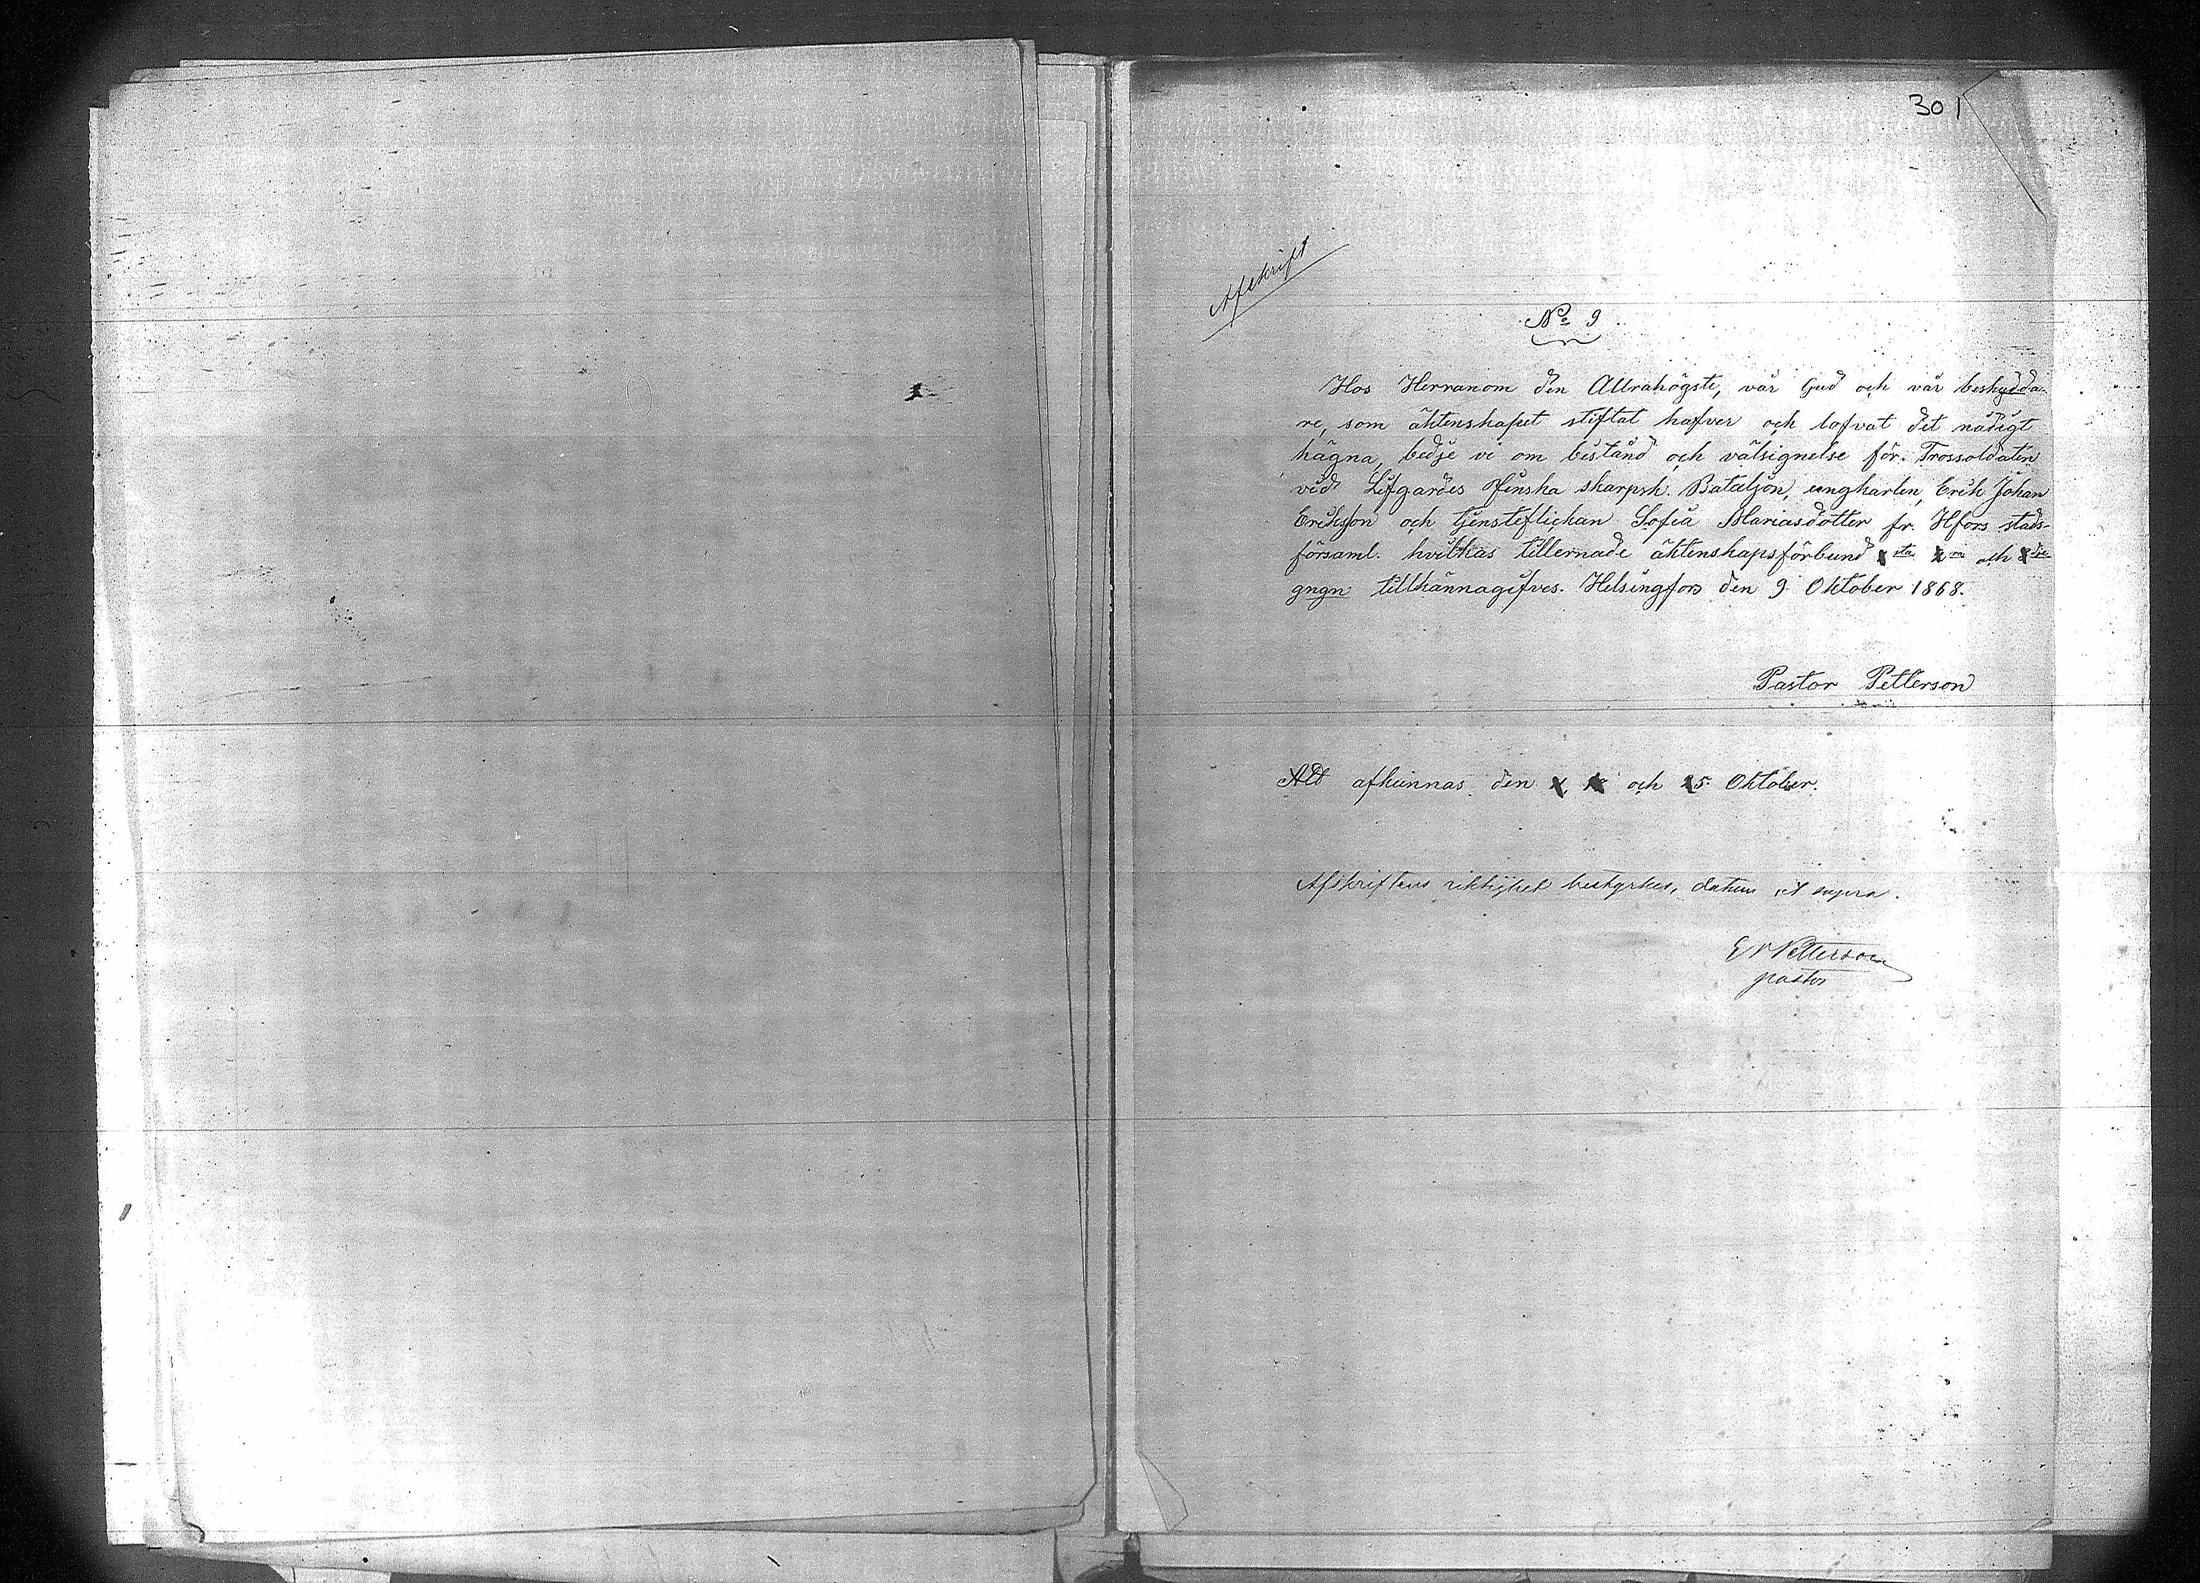 301
Afskrift
No 9
Hos Herranom den Allrahögste, vår Gud och vår beskydda-
re, som äktenskapet stiftat hafver och lofvat det nådigt
hägna, bedje vi om bestånd och välsignelse för Trossoldaten
vid Lifgardes Finska skarpsk. Bataljon, ungkarlen, Erik Johan
Erikson och tjensteflickan Sofia Mariasdotter fr. Hfors stads-
församl. hvilkas tillernade äktenskapsförbund sta ra och dje
gngn tillkännagifves. Helsingfors den 9 Oktober 1868.
Pastor Petterson
Att afkunnas den och 25 Oktober.
Afskriftens riktighet bestyrkes, datum ut supra.
Petterson
pastor